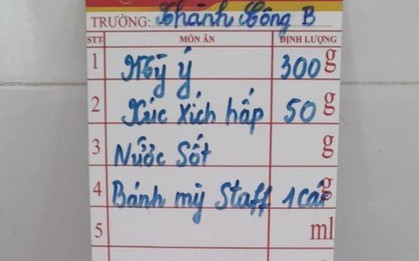 TRƯỜNG: Thành Công B
STT MÓN ĂN ĐỊNH LƯỢNG
1 Mỳ ý 300 g
2 Xúc xích hấp 50 g
3 Nước Sốt g
4 Bánh mỳ Staff 1 cái g
5 ml